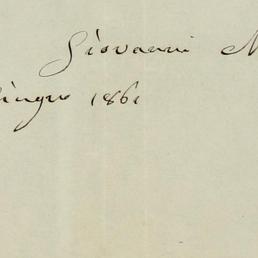 Giovanni M
iugno 1861